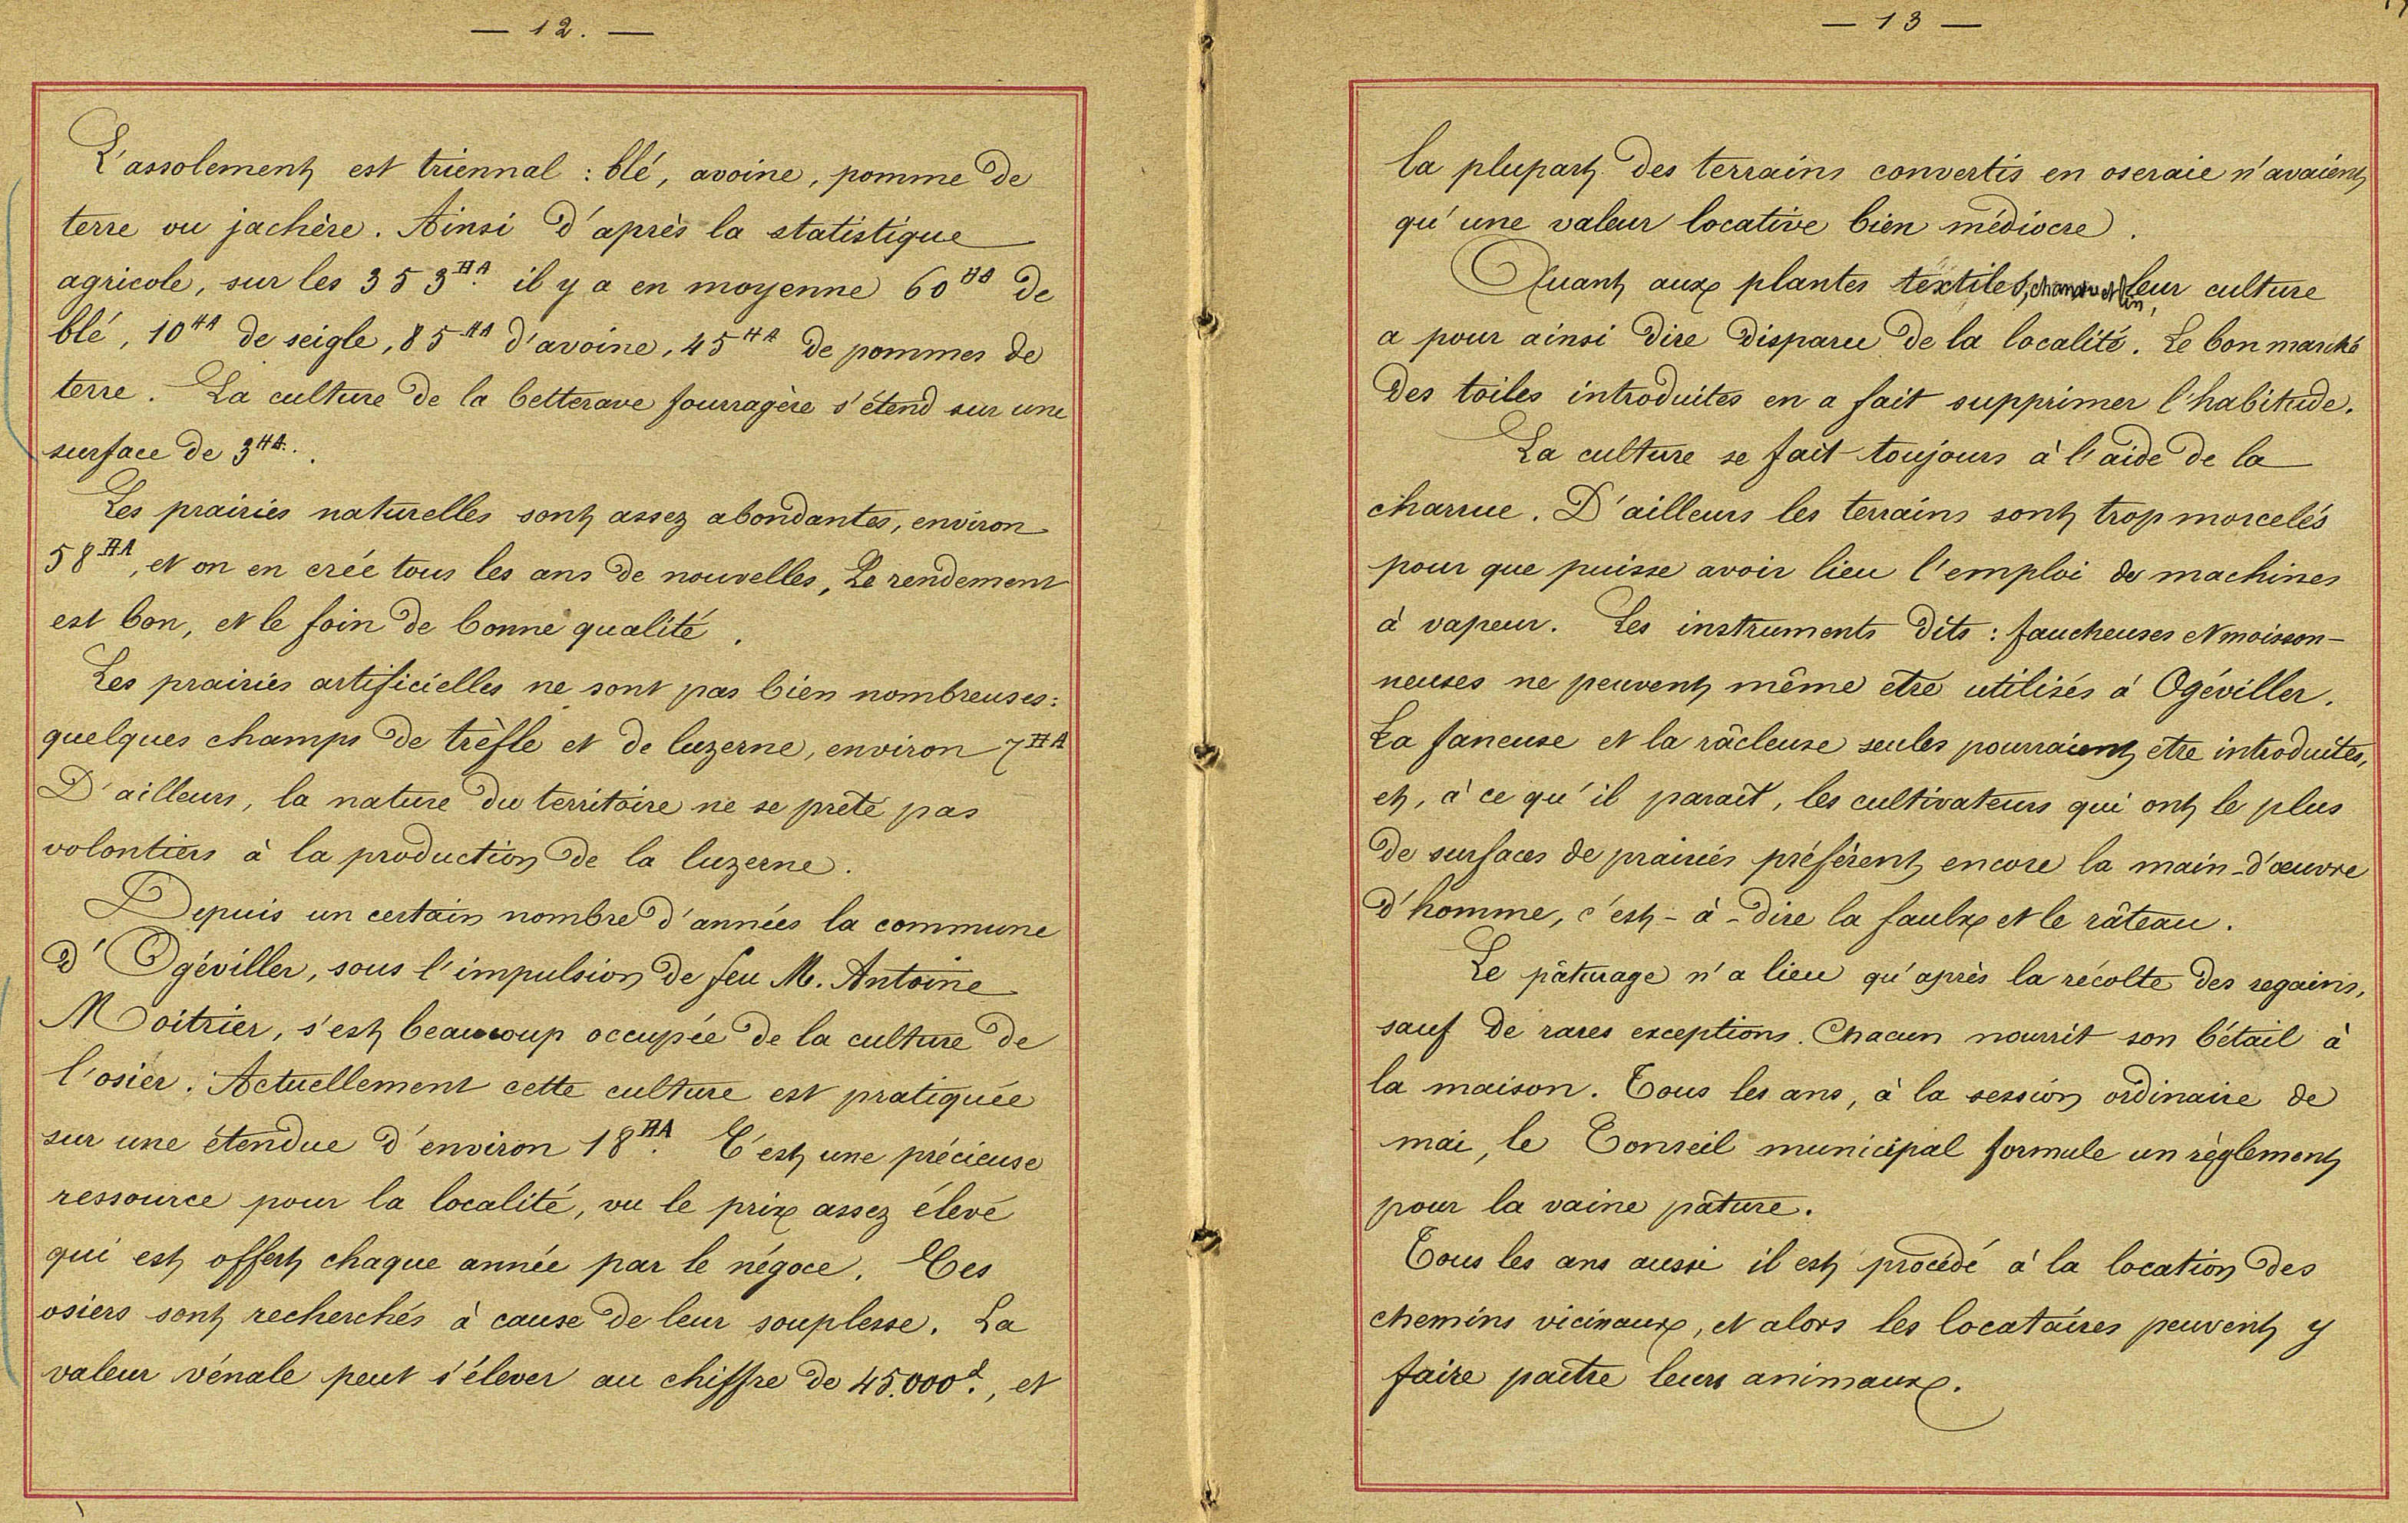 — 12. —
L'assolement est triennal : blé, avoine, pomme de
terre ou jachère. Ainsi d'après la statistique
agricole, sur les 353 HA. il y a en moyenne 60 HA de
blé, 10 HA de seigle, 85 HA d'avoine, 45 HA de pommes de
terre. La culture de la betterave fourragère s'étend sur une
surface de 3 HA..
Les prairies naturelles sont assez abondantes, environ
58 HA, et on en crée tous les ans de nouvelles. Le rendement
est bon, et le foin de bonne qualité.
Les prairies artificielles ne sont pas bien nombreuses :
quelques champs de trèfle et de luzerne, environ 7 HA
D'ailleurs, la nature du territoire ne se prête pas
volontiers à la production de la luzerne.
Depuis un certain nombre d'années la commune
d'Ogéviller, sous l'impulsion de feu M. Antoine
Moitrier, s'est beaucoup occupée de la culture de
l'osier. Actuellement cette culture est pratiquée
sur une étendue d'environ 18 HA. C'est une précieuse
ressource pour la localité, vu le prix assez élevé
qui est offert chaque année par le négoce. Ces
osiers sont recherchés à cause de leur souplesse. La
valeur vénale peut s'élever au chiffre de 45.000 f., et
— 13 —
la plupart des terrains convertis en oseraie n'avaient
qu'une valeur locative bien médiocre.
Quant aux plantes textiles, chanvre et lin, leur culture
a pour ainsi dire disparu de la localité. Le bon marché
des toiles introduites en a fait supprimer l'habitude.
La culture se fait toujours à l'aide de la
charrue. D'ailleurs les terrains sont trop morcelés
pour que puisse avoir lieu l'emploi de machines
à vapeur. Les instruments dits : faucheuses et moisson-
neuses ne peuvent même etre utilisés à Ogéviller.
La faneuse et la râcleuse seules pourraient etre introduites,
et, à ce qu'il parait, les cultivateurs qui ont le plus
de surfaces de prairies préfèrent encore la main-d'œuvre
d'homme, c'est-à-dire la faulx et le râteau.
Le pâturage n'a lieu qu'après la récolte des regains,
sauf de rares exceptions. Chacun nourrit son bétail à
la maison. Tous les ans, à la session ordinaire de
mai, le Conseil municipal formule un règlement
pour la vaine pâture.
Tous les ans aussi il est procédé à la location des
chemins vicinaux, et alors les locataires peuvent y
faire paître leurs animaux.